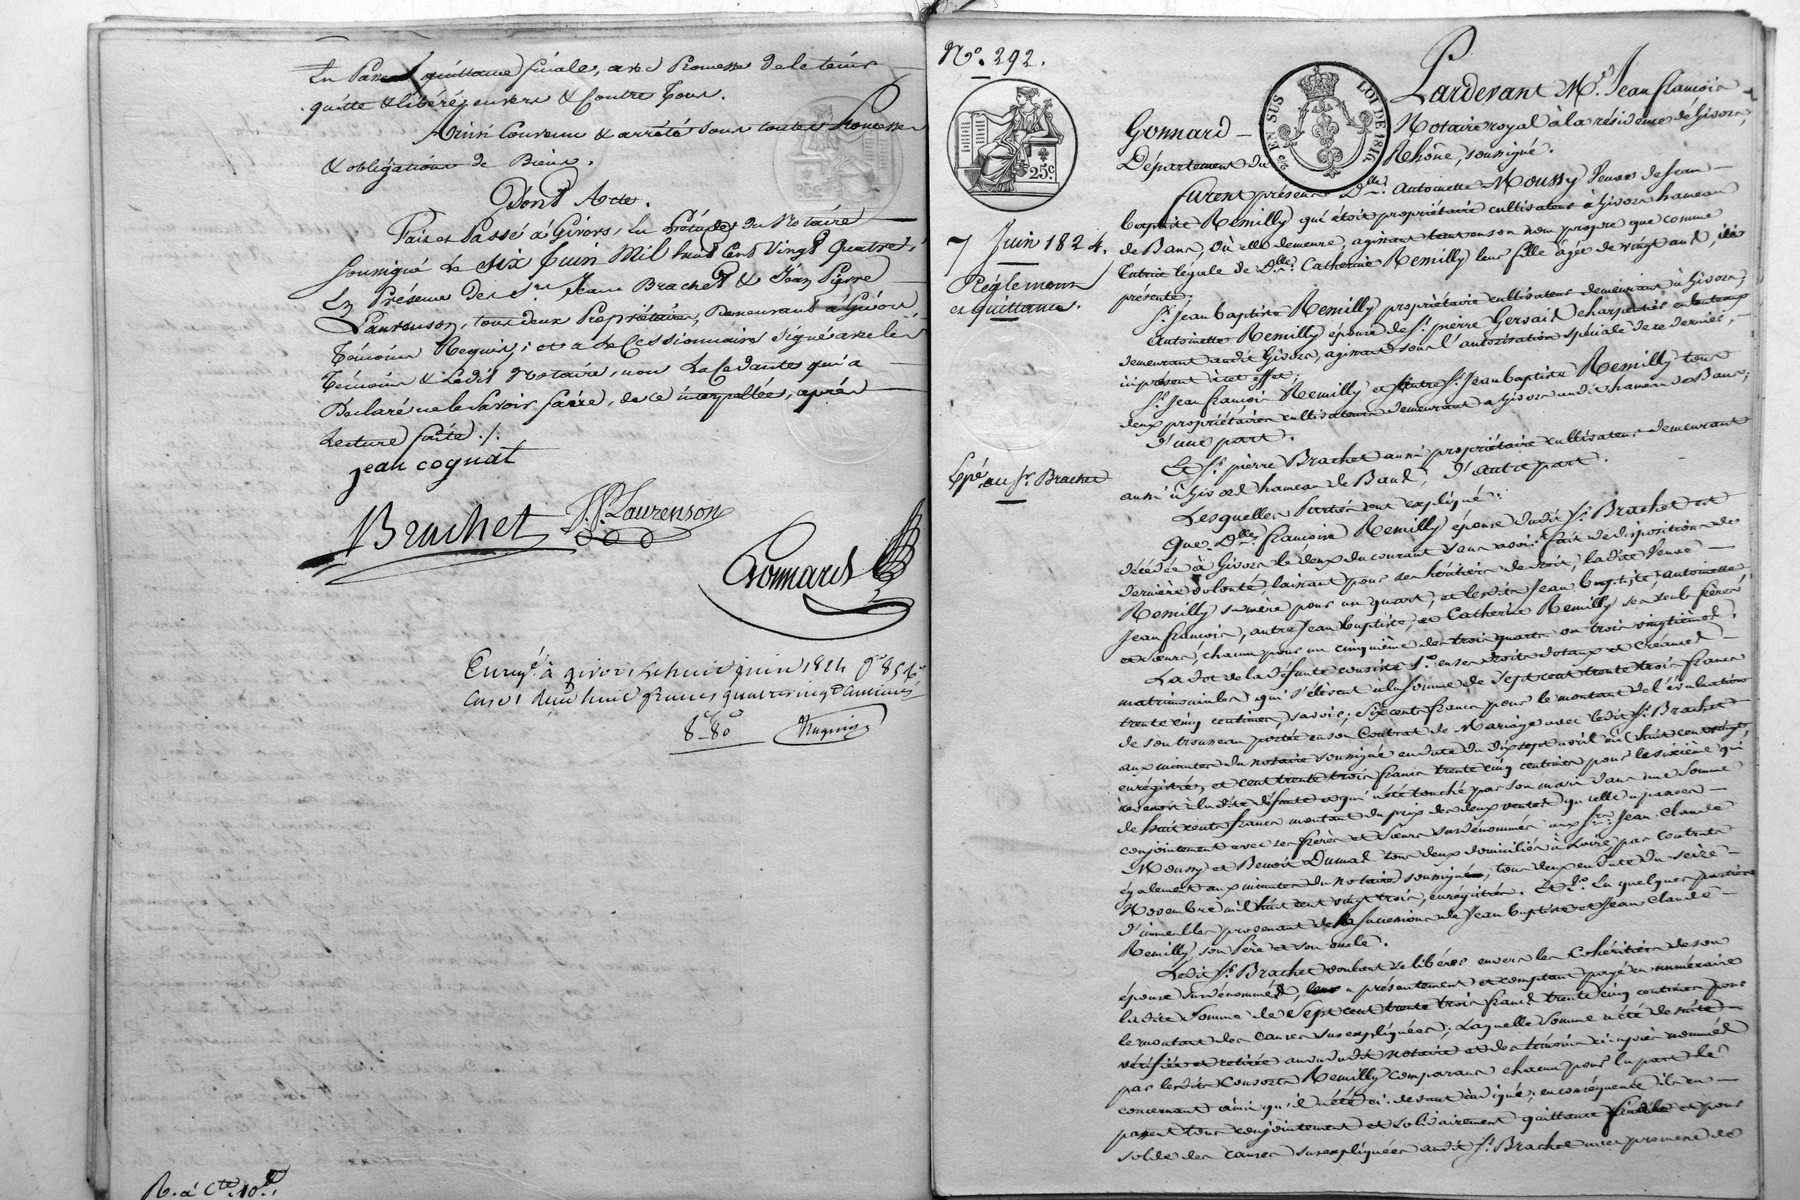 En Passe quittance finale, avec Promesse de le tenir
quitte & libéré envers & contre Tous.
Ainsi Convenu & arrêté sous toutes Promesses
& obligations de Biens.
Dont Acte.
Fait et Passé à Givors, En l'étude du Notaire
Soussigné Le Six Juin Mil huit Cent Vingt Quatre;
En Présence de Srs Jean Brachet & Jean Pierre
Laurenson, tous deux Propriétaires, Demeurant à Givors
Témoins Requis; et a le Cessionnaire Signé avec les
Témoins & Ledit Notaire, non La Cédante qui a
Déclaré ne le Savoir faire, de ce interpellée, après
Lecture faite ./.
jean cognat
Brachet J. P. Laurenson
Gonnard
Enregé à givors le huit juin 1824
huit francs quatre vingt centimes
8-80
R. à Cte. 10
No. 292.
25c.
2e EN SUS LOI DE 1816
7 Juin 1824.
Réglement
et quittance.
Epé. au Sr Brachet
Pardevant Me. Jean françois
Gonnard - Notaire royal à la résidence de Givors,
Département du Rhône, soussigné.
furent présents Dlle. Antoinette Moussy Veuve de Jean
Baptiste Remilly qui étoit propriétaire cultivateur à Givors hameau
de Bans, où elle demeure, agissant tant en son nom propre que comme
tutrice légale de Dlle. Catherine Remilly leur fille âgée de vingt ans, ici
présente.
Sr. Jean Baptiste Remilly propriétaire cultivateur demeurant à Givors;
Antoinette Remilly épouse de Sr. pierre Gersail charpentier en bateaux
demeurant audit Givors, agissant sous l'autorisation spéciale de ce dernier,
ici présent à cet effet;
Sr. Jean françois Remilly et autre Sr. Jean baptiste Remilly tous
deux propriétaires cultivateurs demeurant à Givors audit hameau de Bans;
d'une part.
Et Sr. pierre Brachet aussi propriétaire cultivateur demeurant
aussi à Givors hameau de Bans, d'autre part.
Lesquelles Parties ont expliqué:
Que Dlle. françoise Remilly épouse dudit Sr. Brachet est
décédée à Givors le deux du courant sans avoir fait de disposition de
dernière volonté laissant pour ses héritiers de droit, ladite Veuve
Remilly sa mère pour un quart, et lesdits Jean baptiste, antoinette
Jean françois, autre Jean baptiste, et Catherine Remilly ses seuls frères
et sœurs, chacun pour un cinquième des trois quarts ou trois vingtièmes.
La dot de la défunte consiste 1o. en ses droits dotaux et créances
matrimoniales qui s'élèvent à la somme de Sept cent trente trois francs
trente cinq centimes, savoir; Six cents francs pour le montant de l'évaluation
de son trousseau portée en son Contrat de Mariage avec ledit Sr. Brachet
aux minutes du notaire soussigné en date du dix sept avril mil huit cent vingt,
enregistré, et cent trente trois francs trente cinq centimes pour le sixième qui
revenoit à ladite défunte et qui a été touché par son mari dans une somme
de huit cents francs montant du prix des deux ventes qu'elle a passées
conjointement avec ses frères et sœurs susdénommés aux Srs. Jean Claude
Moussy et Benoit Dumas tous deux domiciliés à Loire, par contrats
également aux minutes du notaire soussigné, tous deux en date du seize
Novembre mil huit cent vingt trois, enregistrés. Et 2o. En quelques parties
d'immeubles provenant de la succession de Jean baptiste et Jean Claude
Remilly, son Père et son oncle.
Ledit Sr. Brachet voulant se libérer envers les Cohéritiers de son
épouse susdénommés, a présentement et comptant payé en numéraire
ladite Somme de Sept cent trente trois francs trente cinq centimes pour
le montant des causes susexpliquées; Laquelle somme a été de suite
vérifiée et retirée au vu dudit notaire et des témoins ci-après nommés
par lesdits Consorts Remilly comparans chacun pour la part le
concernant ainsi qu'il a été ci-devant indiqué; en conséquence ils en
passent tous conjointement et solidairement quittance finale et pour
solde des causes susexpliquées audit Sr. Brachet avec promesse de